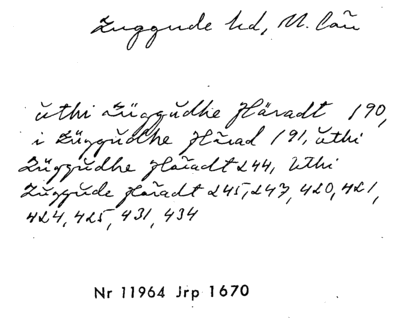 Zuggude hd, U. län
ŭthi Züggŭdhe Häradt 190,
i Züggŭdhe Härad 191, ŭthi
Züggŭdhe Häradt 244, Uthi
Züggŭde Häradt 245, 247, 420, 421,
424, 425, 431, 434
Nr 11964 Jrp 1670